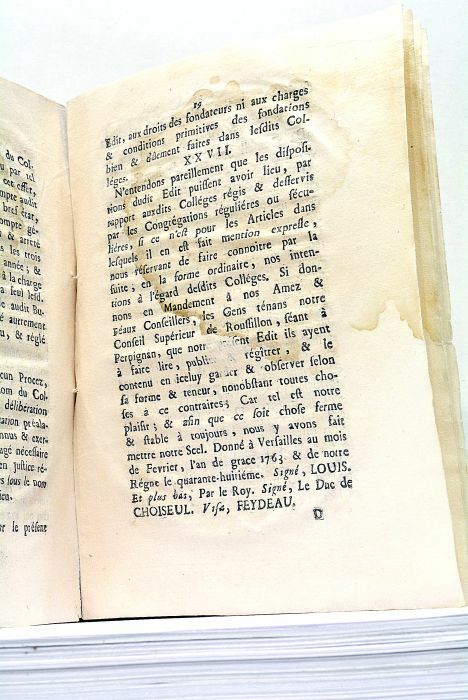 du Col-
u par id
cet effet,
mpte audit
bref état,
ompte gé-
& arrêté
les trois
année; &
à la charge
a feul lesd.
de audit Bu-
é autrement
u, & réglé
cun Procez,
nom du Col-
délibération
tation préala-
nnus & exer-
ugé nécessaire
en justice ré-
es sous le nom
ien.
er le présent
19
Edit, aux droits des fondateurs ni aux charges
& conditions primitives des fondations
bien & dûement faires dans lesdits Col-
léges.
XXVII.
N'entendons pareillement que les disposi-
tions dudit Edit puissent avoir lieu, par
rapport auxdits Colléges régis & desservis
par les Congrégations réguliéres ou sécu-
liéres, si ce n'est pour les Articles dans
lesquels il en est fait mention expresse,
nous réservant de faire connoître par la
suite, en la forme ordinaire, nos inten-
tions à l'égard desdits Colléges. Si don-
nons en Mandement à nos Amez &
Féaux Conseillers, les Gens ténans notre
Conseil Supérieur de Roussillon, séant à
Perpignan, que notre présent Edit ils ayent
à faire lire, publier & régîtrer, & le
contenu en iceluy garder & observer selon
sa forme & teneur, nonobstant toutes cho-
ses à ce contraires; Car tel est notre
plaisir; & afin que ce soit chose ferme
& stable à toujours, nous y avons fait
mettre notre Scel. Donné à Versailles au mois
de Fevrier, l'an de grace 1763 & de notre
Régne le quarante-huitiéme. Signé, LOUIS.
Et plus bas, Par le Roy. Signé, Le Duc de
CHOISEUL. Visa, FEYDEAU.